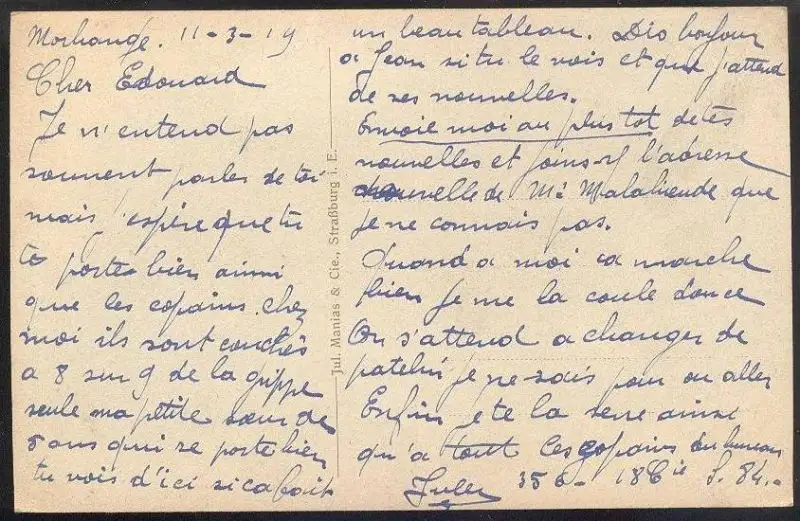 Morhange. 11-3-19
Cher Edouard
Je n'entend pas
souvent parler de toi
mais j'espère que tu
te portes bien ainsi
que les copains. Chez
moi ils sont couchés
a 8 sur 9 de la grippe
seule ma petite sœur de
8 ans qui se porte bien
tu vois d'ici si ca fait
Jul. Manias & Cie., Straßburg i. E.
un beau tableau. Dis bonjour
a Jean si tu le vois et que j'attend
de ses nouvelles.
Envoie moi au plus tot de tes
nouvelles et joins-y l'adresse
nouvelle de Mr que
je ne connais pas.
Quand a moi ca marche
bien je me la coule douce
On s'attend a changer de
patelin je ne sais pour ou aller
Enfin je te la serre ainsi
qu'a tout les copains du bureau
Jules 356 - 18 Cie S. 84.-